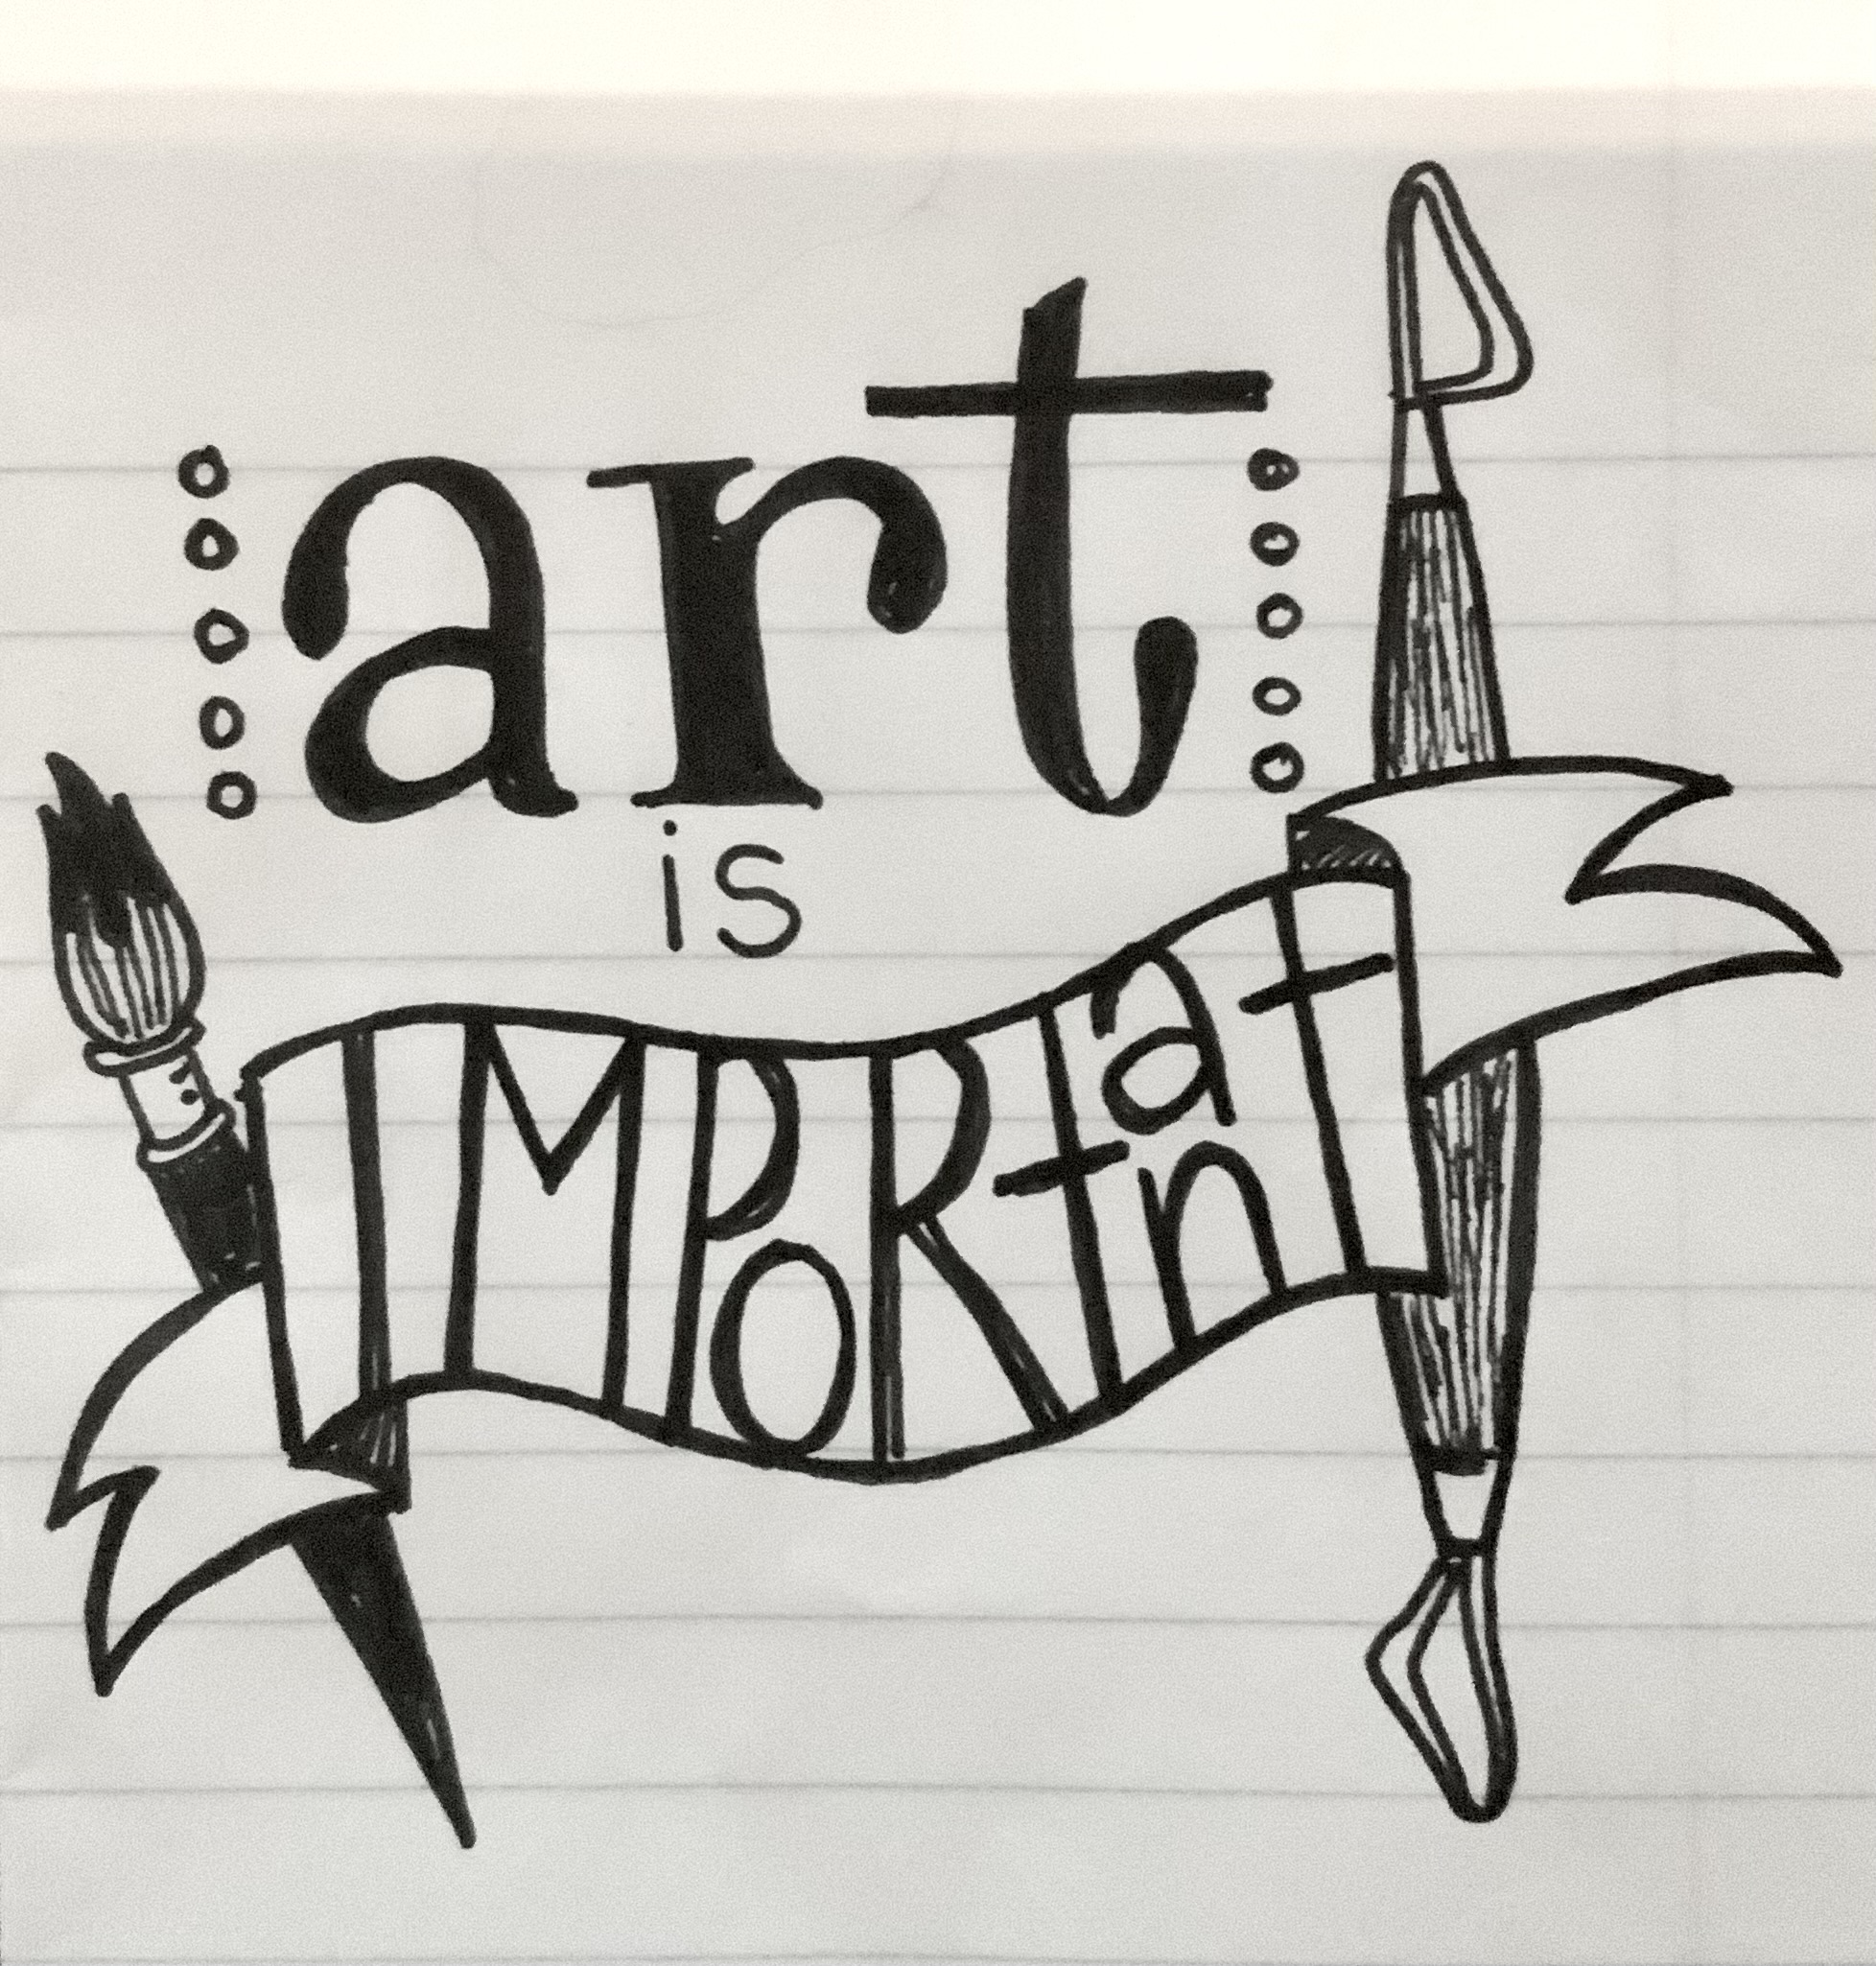 art
is
IMPORtant